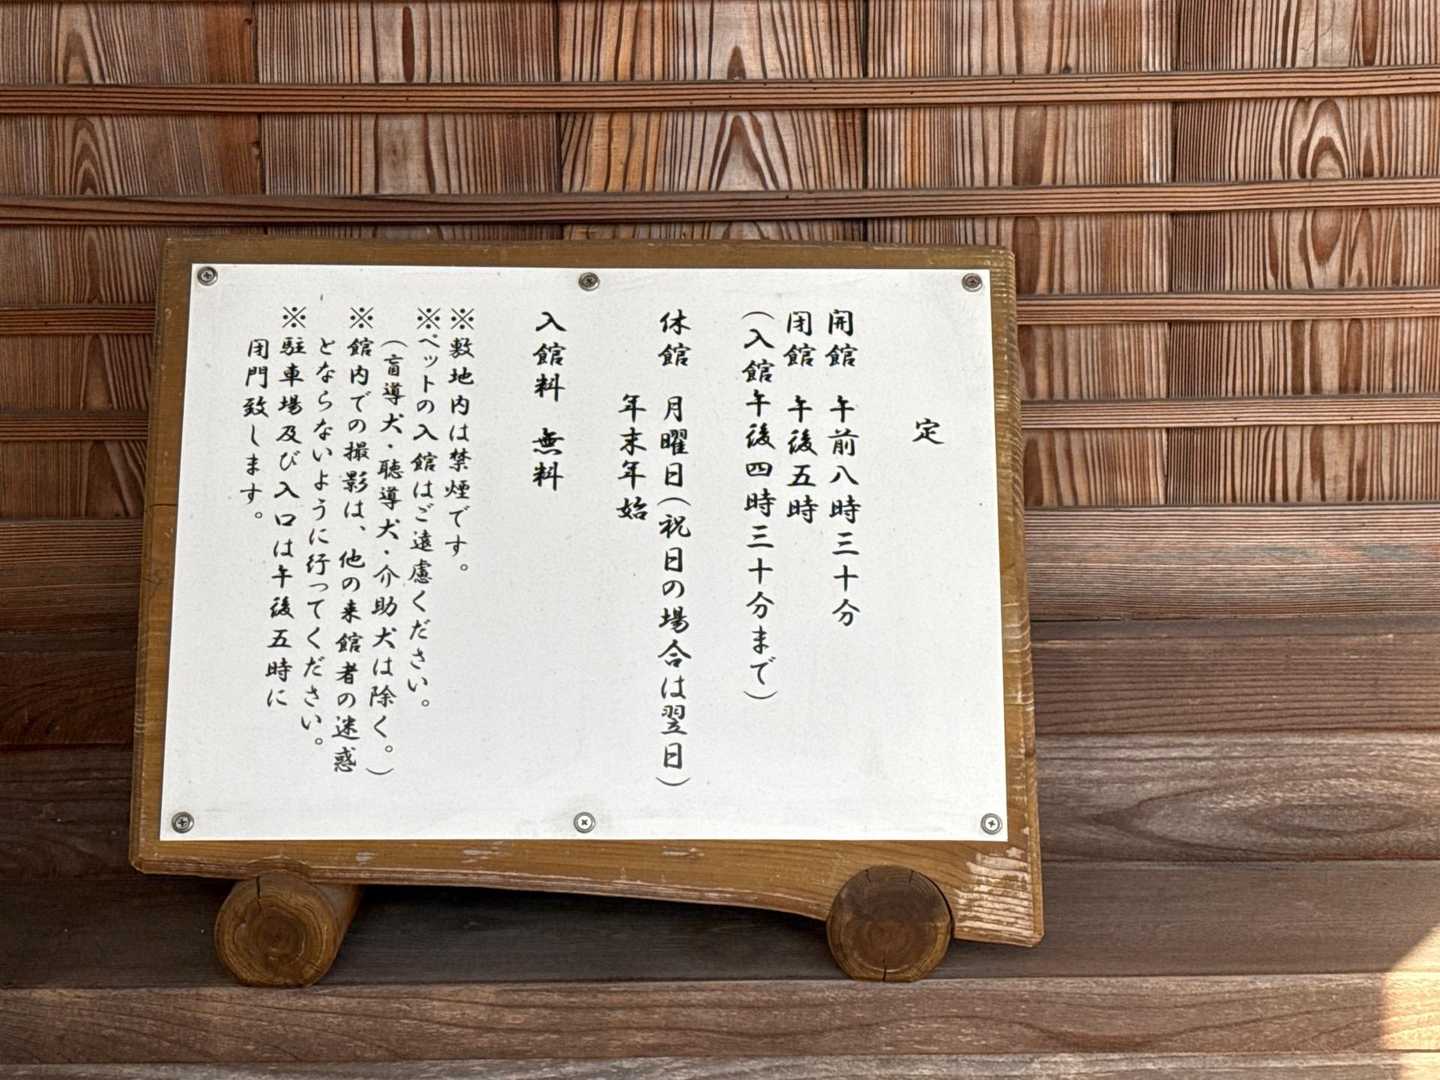 定
開館　午前八時三十分
閉館　午後五時
（入館午後四時三十分まで）
休館　月曜日（祝日の場合は翌日）
年末年始
入館料　無料
※敷地内は禁煙です。
※ペットの入館はご遠慮ください。
（盲導犬・聴導犬・介助犬は除く。）
※館内での撮影は、他の来館者の迷惑
とならないように行ってください。
※駐車場及び入口は午後五時に
閉門致します。